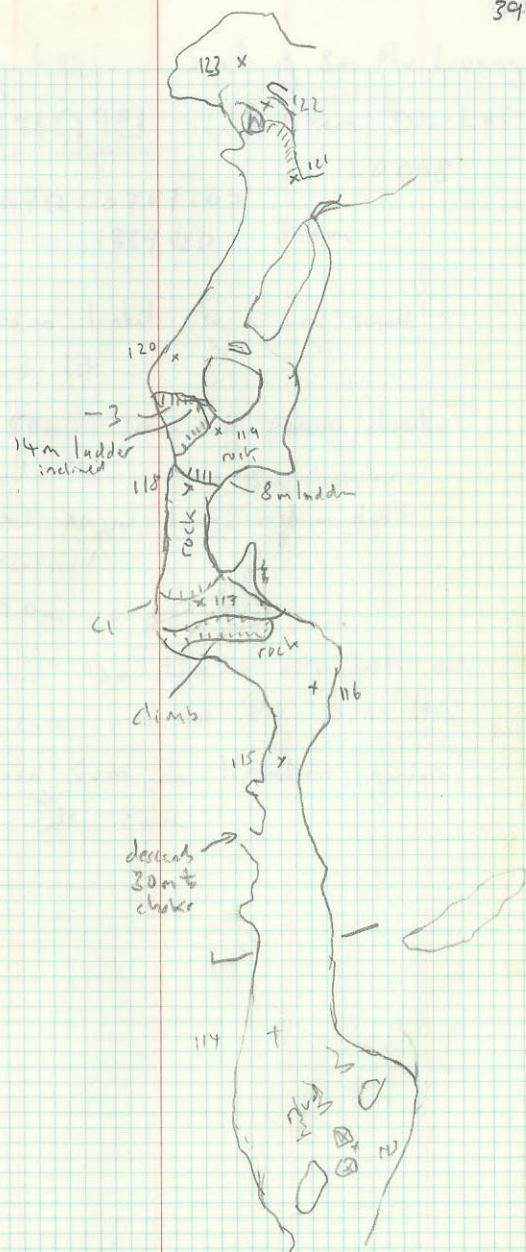 39
123
122
121
120
-3
14m ladder
inclined
119
rock
118
8m ladder
rock
117
C1
rock
climb
116
115
descends
30m to
choke
114
mud